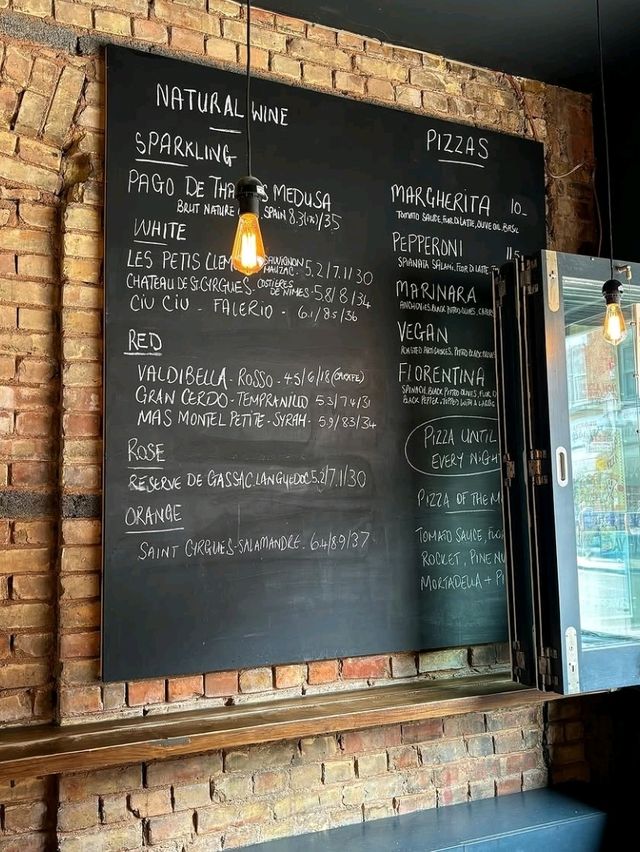 NATURAL WINE
SPARKLING
PAGO DE MEDUSA
BRUT NATURE SPAIN 8.3 /35
WHITE
LES PETIS 5.2/7.1/30
CHATEAU DE ST CYRGUES. COSTIERES DE NIMES - 5.8/8/34
CIU CIU - FALERIO - 6.1/8.5/36
RED
VALDIBELLA - ROSSO - 4.5/6/18
GRAN CERDO - TEMPRANILLO 5.3/7.4/31
MAS MONTEL PETITE - SYRAH - 5.9/8.3/34
ROSE
RESERVE DE GASSAC LANGUEDOC 5.2/7.1/30
ORANGE
SAINT CYRGUES - SALAMANDRE - 6.4/8.9/37
PIZZAS
MARGHERITA 10_
TOMATO SAUCE, FIOR DI LATTE, OLIVE OIL BASIL
PEPPERONI
SPIANATA SALAMI, FIOR DI LATTE
MARINARA
ANCHOVIES, BLACK PITTED OLIVES,
VEGAN
ROASTED ARTICHOKES, PITTED BLACK
FIORENTINA
SPINACH, BLACK PITTED OLIVES, FIOR
BLACK PEPPER, TOPPED WITH A
PIZZA UNTIL
EVERY NIGH
PIZZA OF THE M
TOMATO SAUCE,
ROCKET, PINE NU
MORTADELLA +